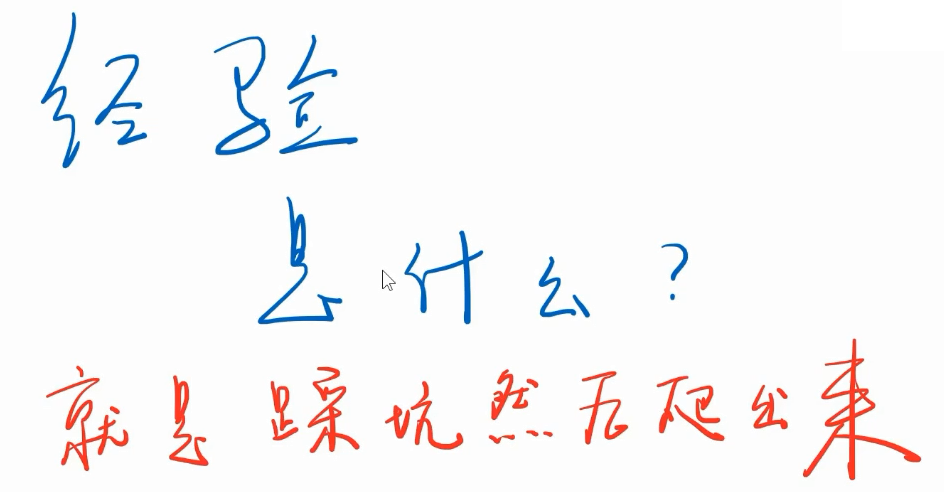 经验
是什么?
就是踩坑然后爬出来